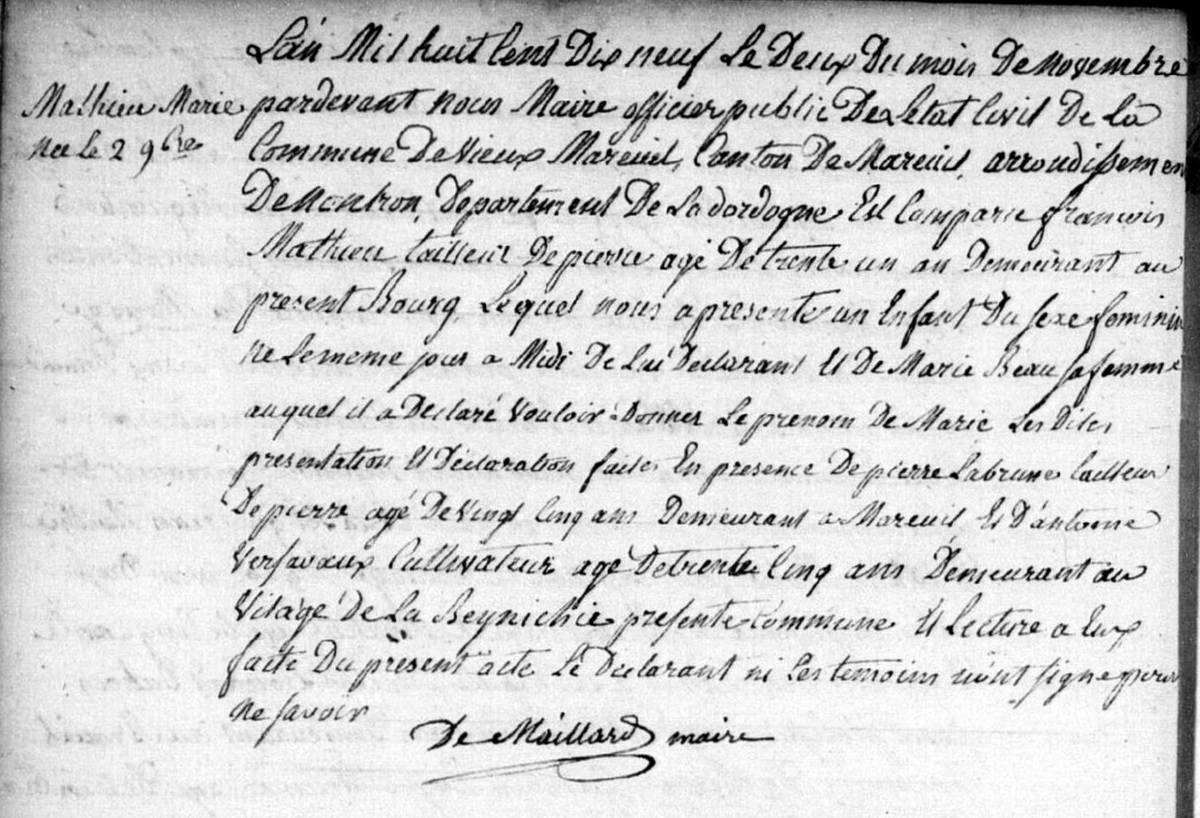 L'an Mil huit Cent Dix neuf Le Deux Du mois De novembre
Mathieu Marie
née le 2 9bre
pardevant nous Maire officier public De Létat Civil De la
Commune De vieux Mareuil, Canton De Mareuil, arrondissemen
De Nontron, Département De La dordogne Est Comparu françois
Mathieu tailleur De pierre agé De trente un an Demeurant au
present Bourg Lequel nous a presenté un Enfant Du sexe feminin
né Le meme jour a Midi De Lui Declarant Et De Marie Beau sa femme
auquel il a Declaré Vouloir Donner Le prenom De Marie Les Dites
presentation Et Déclaration faites En presence De pierre Labrune tailleur
De pierre agé De Vingt Cinq ans Demeurant a Mareuil Et D'antoine
Versavaux Cultivateur agé De trente Cinq ans Demeurant au
Vilage De La Beynichie presente Commune Et Lecture a Eux
faite Du présent acte Le Declarant ni Les temoins n'ont signé pour
ne savoir
De Maillard maire